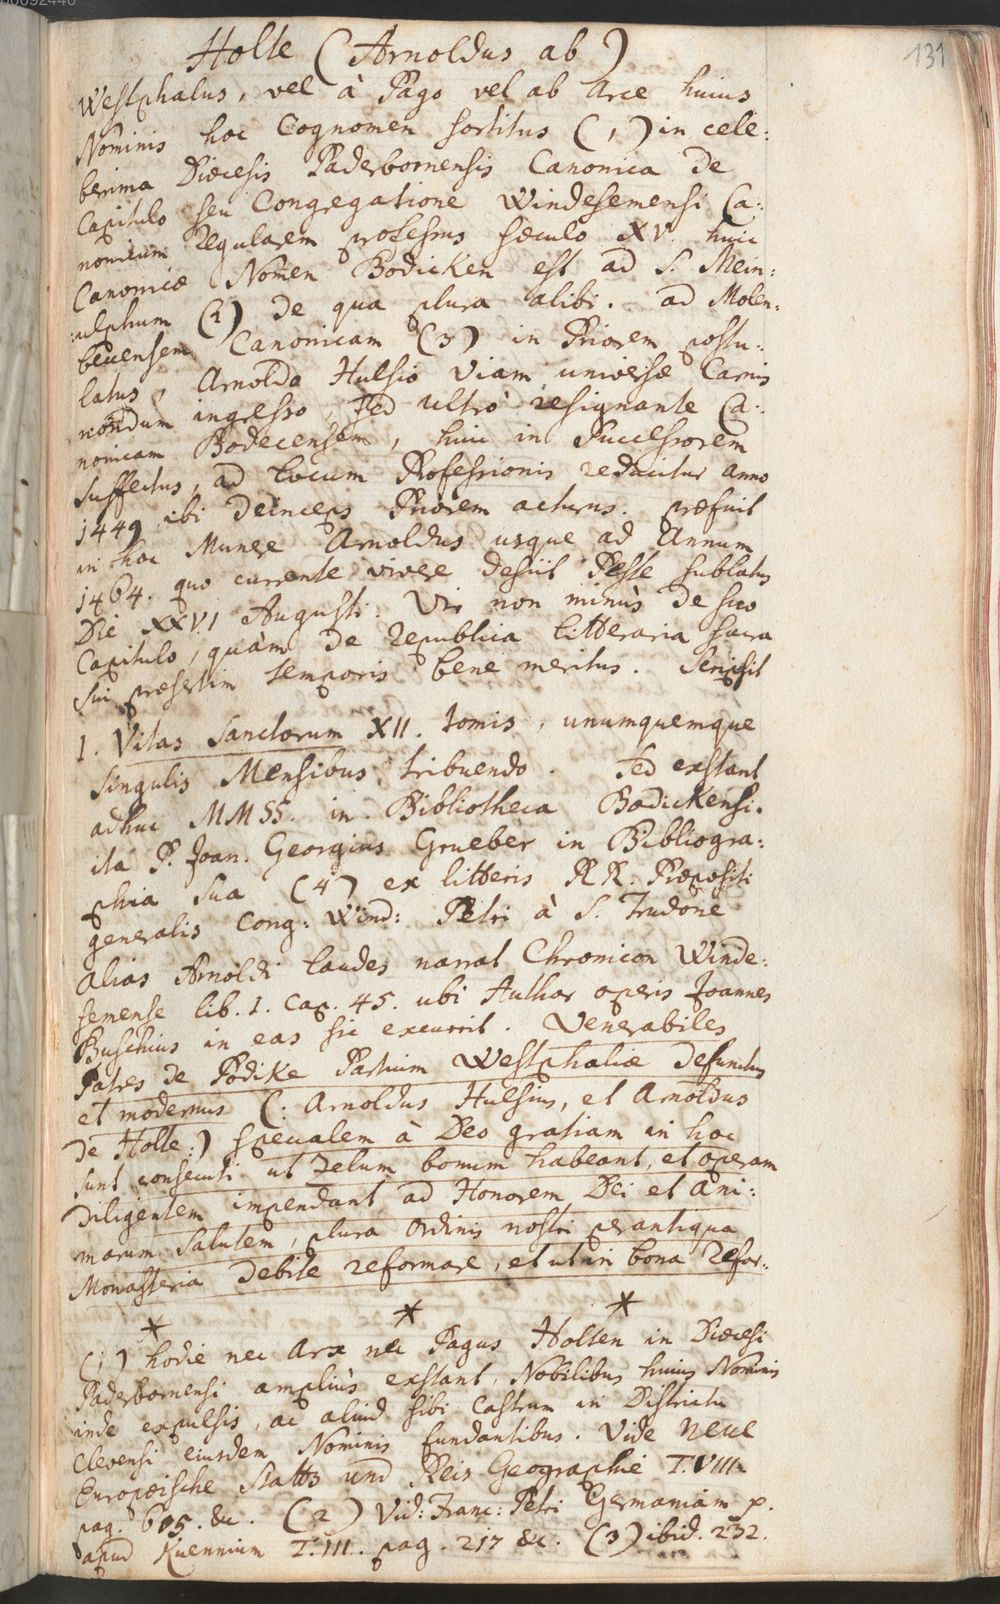 131
Holte (Arnoldus ab)
Westphalus, vel à Pago vel ab Arce huius
Nominis hoc Cognomen sortitus (1) in cele:
berima Diœcesis Paderbornensis Canonica de
Capitulo seu Congregatione Windesemensi Ca:
nonicum Regularem professus sæculo XV. huic
Canonicæ Nomen Bodicken est ad S. Mein:
ulphum (2) de qua plura alibi. ad Molen:
beccensem Canonicam (3) in Priorem postu:
latus, Arnoldo Hulsio viam universæ Carnis
nondum ingresso, sed ultrò resignante Ca:
nonicam Bodecensem, huic in Successorem
suffectus, ad locum Professionis reducitur anno
1449 ibi deinceps Priorem acturus. præfuit
in hoc Munere Arnoldus usque ad Annum
1464. quo currente vivere desiit Peste sublatus
Die XXVI Augusti. Vir non minùs de suo
Capitulo, quàm de Republica litteraria sacra
sui præsertim temporis bene meritus. Scripsit
1. Vitas Sanctorum XII. tomis, unumquemque
singulis Mensibus tribuendo. Sed exstant
adhuc MMSS. in Bibliotheca Bodickensi.
ita P. Joan. Georgius Grueber in Bibliogra:
phia sua (4) ex litteris RR. Præpositi
generalis Cong: Wind: Petri à S. Trudone
alias Arnoldi laudes narrat Chronicon Winde:
semense lib. 1. Cap. 45. ubi Author operis Joannes
Buschius in eas sic excurrit. Venerabiles
Patres de Bodike Partium Westphaliæ defunctus
et modernus (: Arnoldus Hulsius, et Arnoldus
de Holte :) specialem à Deo gratiam in hoc
sunt consecuti ut zelum bonum habeant, et operam
diligentem impendant ad Honorem Dei et ani:
marum Salutem, plura Ordinis nostri perantiqua
Monasteria debite reformare, et ut in bona refor:
* * *
(1) hodie nec Arx nec Pagus Holten in Diœcesi
Paderbornensi ampliùs exstant, Nobilibus huius Nominis
inde expulsis, ac aliud sibi Castrum in Districtu
Clevensi eiusdem Nominis fundantibus. Vide Neue
Europæische Statts und Reis Geographie T. VIII.
pag. 605. &c. (2) Vid: Franc: Petri Germaniam p.
apud Kuennium T. III. pag. 217 &c. (3) ibid. 232.